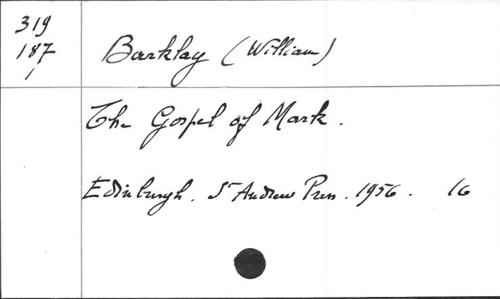 319
187 Barklay (William)
1
The Gospel of Mark.
Edinburgh. St Andrew Press. 1956. 16